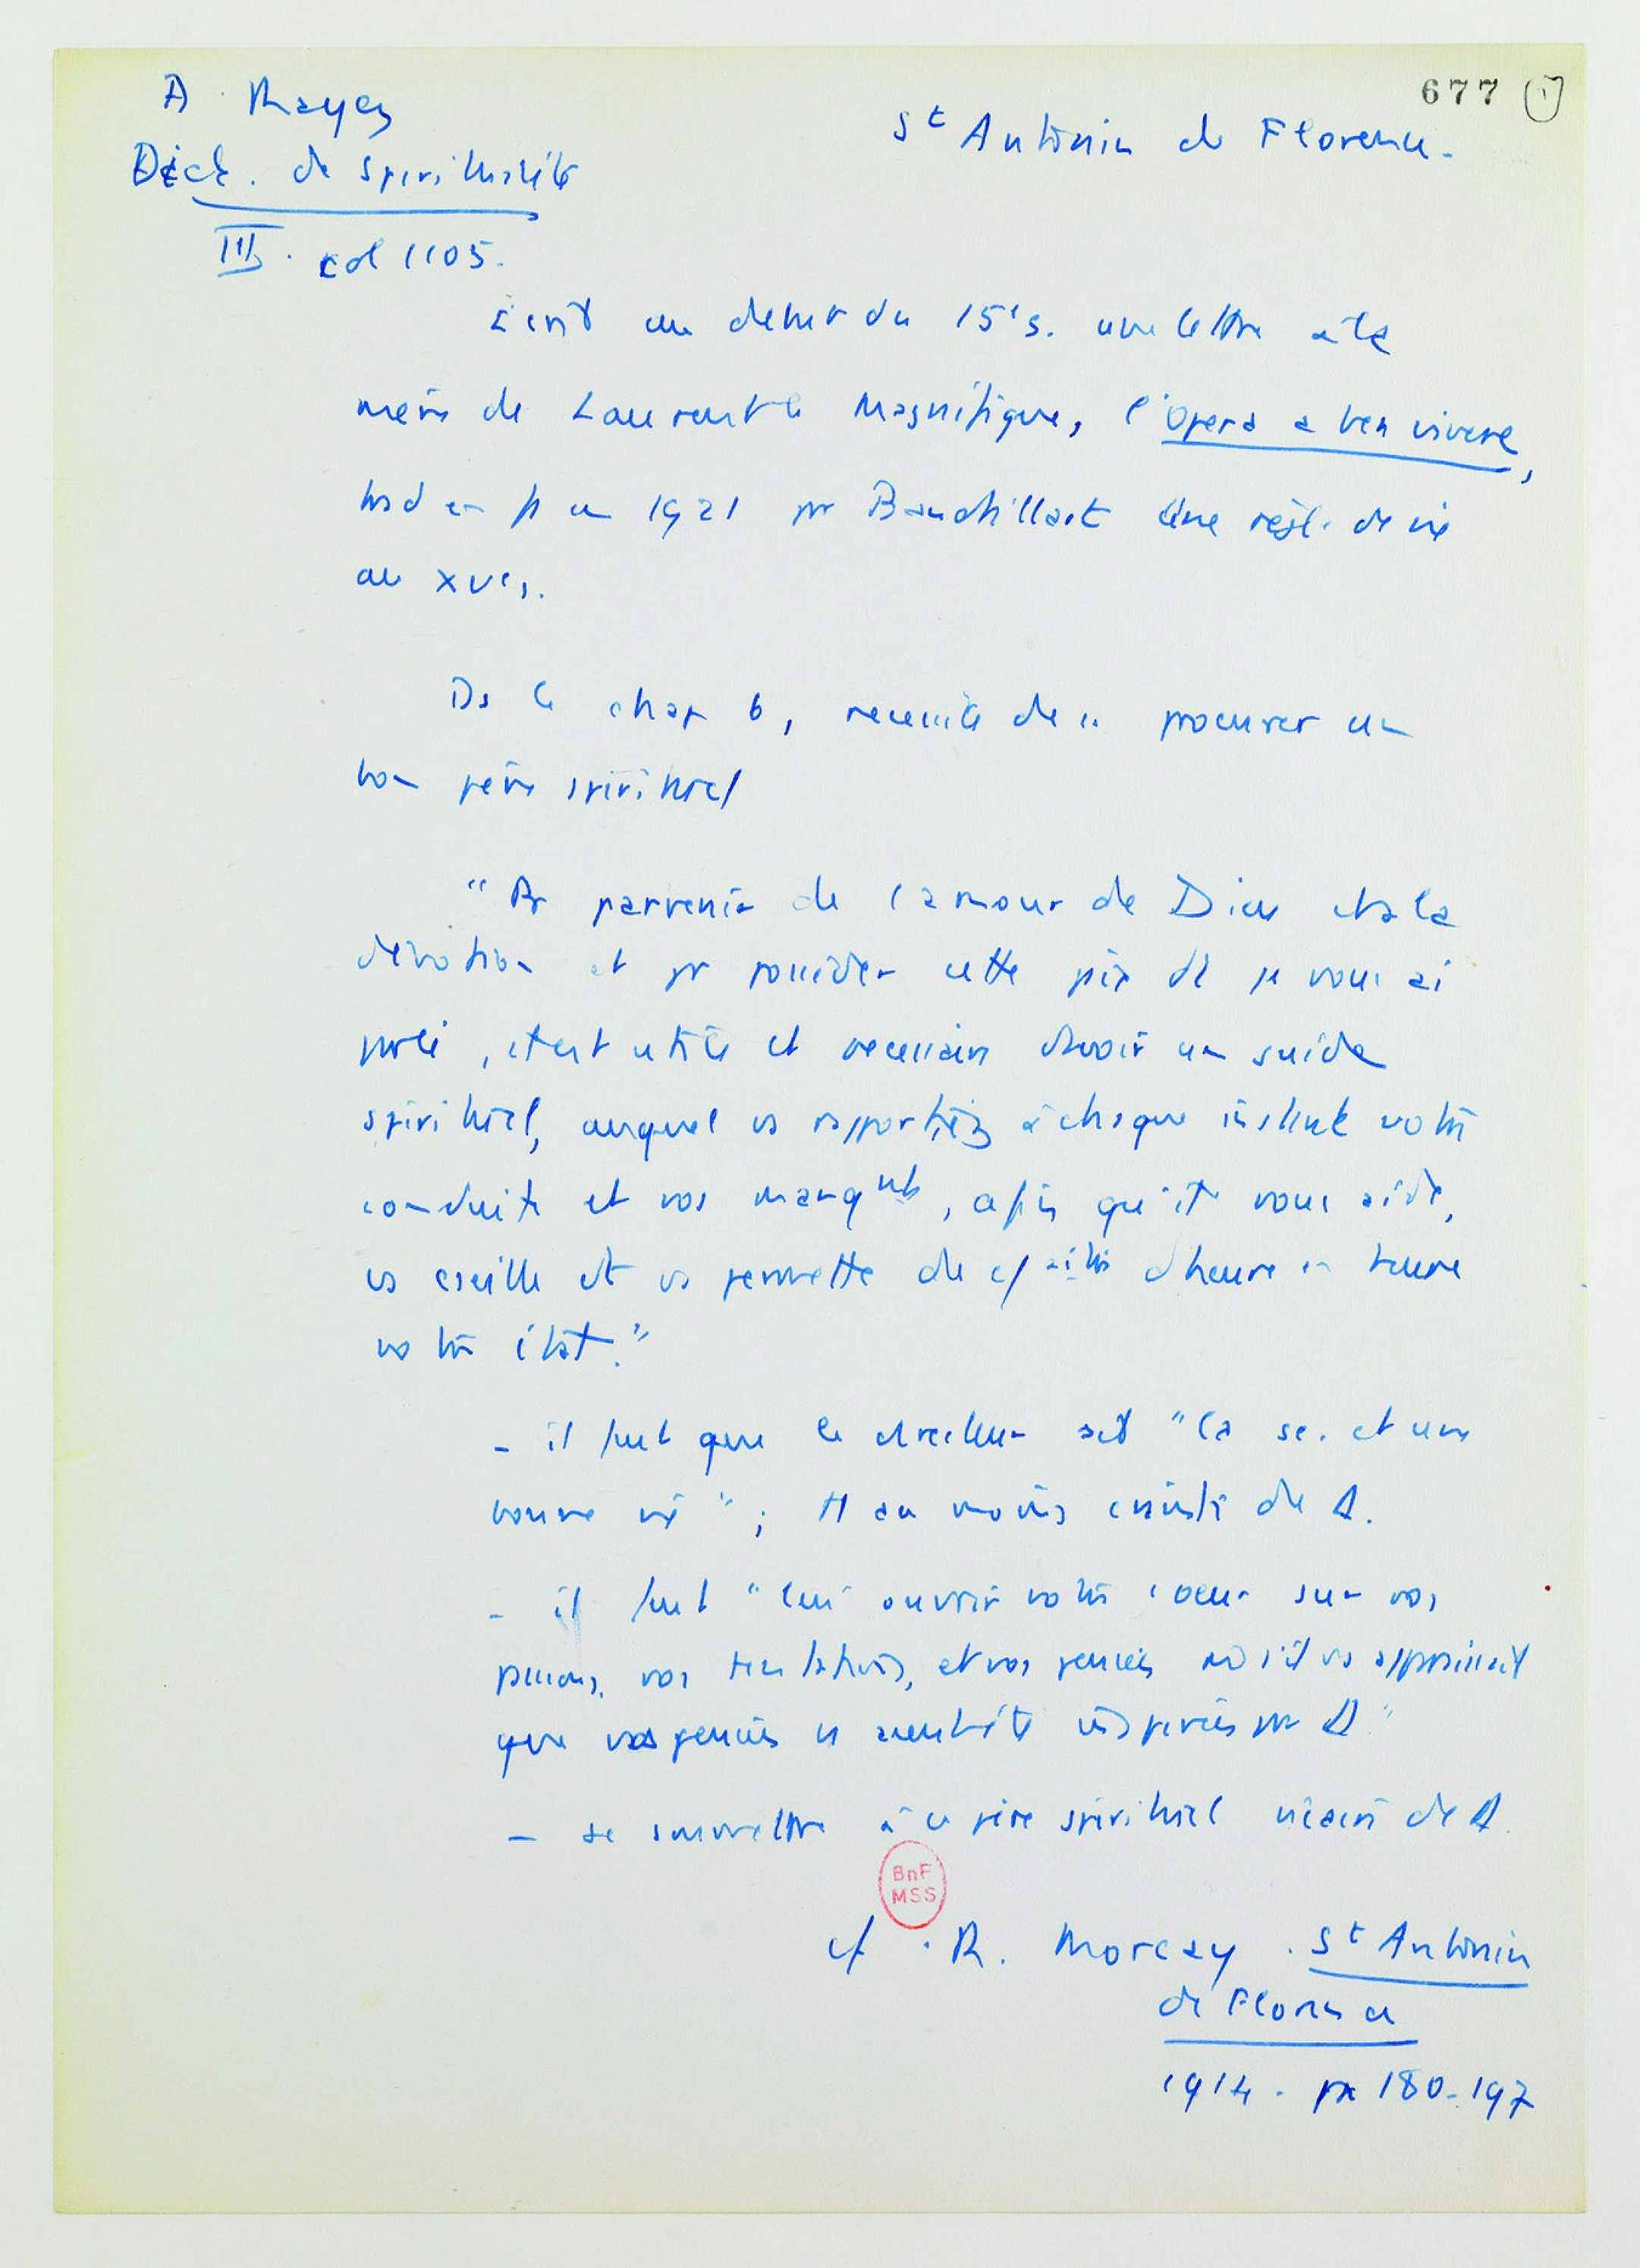 677 1
A Mayer
St Antonin de Florence.
Dict. de spiritualité
III. col 1105.
Ecrit au debut du 15es. une lettre à la
mère de Laurent le Magnifique, l'Opera a ben vivere,
trad en fr en 1921 pr Baudrillart Une règle de vie
au XVes.
Ds le chap 6, necessité de se procurer un
bon père spirituel
"Pr parvenir de l'amour de Dieu et à la
dévotion et pr posséder cette paix dt je vous ai
parlé, il est utile et necessaire d'avoir un guide
spirituel, auquel vs rapportiez à chaque instant votre
conduite et vos manqnts, afin qu'il vous aide,
vs cseille et vs permette de cnaitre d'heure en heure
votre état."
- il faut que le directeur ait "la sc. et une
bonne vie"; et au moins crainte de D.
- il faut "lui ouvrir votre coeur sur vos
passions, vos tentations, et vos pensées m s'il vs apparaissait
que vos pensées st aient été inspirées pr D"
- se soumettre à ce père spirituel vicaire de D.
BnF
MSS
cf. R. Morcay. St Antonin
de Florence
1914. pp 180-197